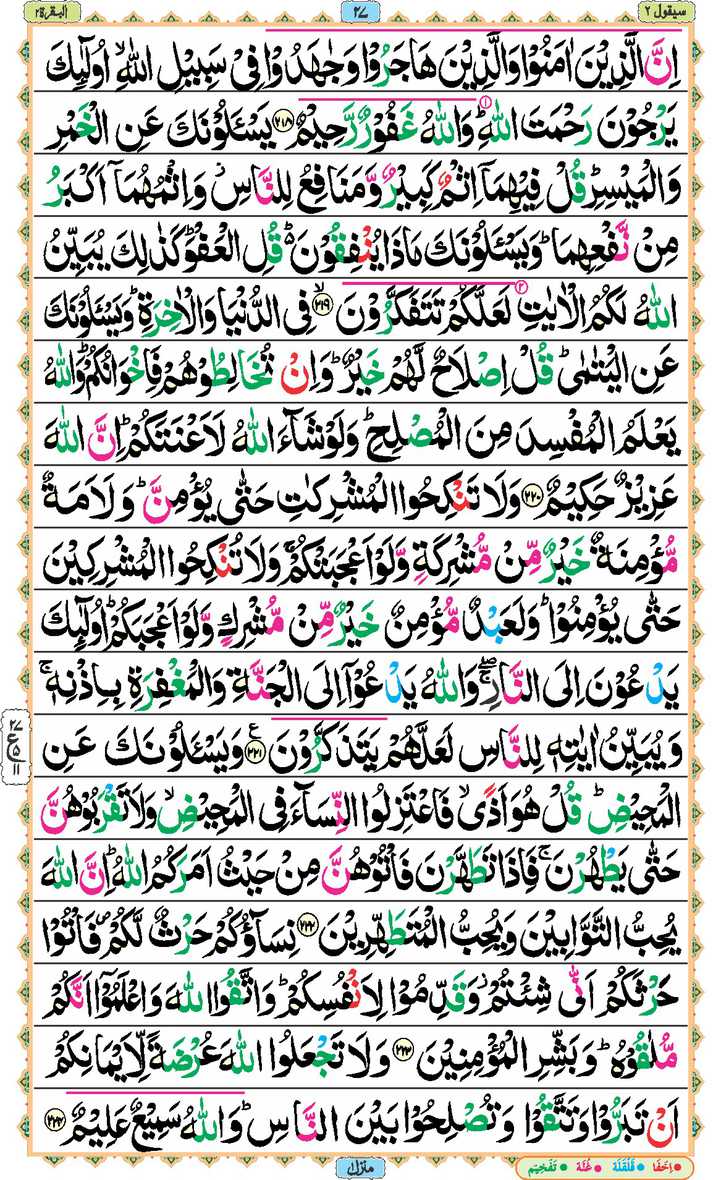 سيقول ٢
٢٧
البقرة ٢
اِنَّ الَّذِيْنَ اٰمَنُوْا وَالَّذِيْنَ هَاجَرُوْا وَجٰهَدُوْا فِيْ سَبِيْلِ اللّٰهِ ۙ اُولٰٓئِكَ
يَرْجُوْنَ رَحْمَتَ اللّٰهِ ؕ وَاللّٰهُ غَفُوْرٌ رَّحِيْمٌ ﴿۲۱۸﴾ يَسْـَٔلُوْنَكَ عَنِ الْخَمْرِ
وَالْمَيْسِرِ ؕ قُلْ فِيْهِمَاۤ اِثْمٌ كَبِيْرٌ وَّمَنَافِعُ لِلنَّاسِ ؗ وَاِثْمُهُمَاۤ اَكْبَرُ
مِنْ نَّفْعِهِمَا ؕ وَيَسْـَٔلُوْنَكَ مَاذَا يُنْفِقُوْنَ ؕ۬ قُلِ الْعَفْوَ ؕ كَذٰلِكَ يُبَيِّنُ
اللّٰهُ لَكُمُ الْاٰيٰتِ لَعَلَّكُمْ تَتَفَكَّرُوْنَ ﴿۲۱۹﴾ ۙ فِي الدُّنْيَا وَالْاٰخِرَةِ ؕ وَيَسْـَٔلُوْنَكَ
عَنِ الْيَتٰمٰى ؕ قُلْ اِصْلَاحٌ لَّهُمْ خَيْرٌ ؕ وَاِنْ تُخَالِطُوْهُمْ فَاِخْوَانُكُمْ ؕ وَاللّٰهُ
يَعْلَمُ الْمُفْسِدَ مِنَ الْمُصْلِحِ ؕ وَلَوْ شَآءَ اللّٰهُ لَاَعْنَتَكُمْ ؕ اِنَّ اللّٰهَ
عَزِيْزٌ حَكِيْمٌ ﴿۲۲۰﴾ وَلَا تَنْكِحُوا الْمُشْرِكٰتِ حَتّٰى يُؤْمِنَّ ؕ وَلَاَمَةٌ
مُّؤْمِنَةٌ خَيْرٌ مِّنْ مُّشْرِكَةٍ وَّلَوْ اَعْجَبَتْكُمْ ۚ وَلَا تُنْكِحُوا الْمُشْرِكِيْنَ
حَتّٰى يُؤْمِنُوْا ؕ وَلَعَبْدٌ مُّؤْمِنٌ خَيْرٌ مِّنْ مُّشْرِكٍ وَّلَوْ اَعْجَبَكُمْ ؕ اُولٰٓئِكَ
يَدْعُوْنَ اِلَى النَّارِ ۖۚ وَاللّٰهُ يَدْعُوْۤا اِلَى الْجَنَّةِ وَالْمَغْفِرَةِ بِاِذْنِهٖ ۚ
وَيُبَيِّنُ اٰيٰتِهٖ لِلنَّاسِ لَعَلَّهُمْ يَتَذَكَّرُوْنَ ﴿۲۲۱﴾ ع وَيَسْـَٔلُوْنَكَ عَنِ
الْمَحِيْضِ ؕ قُلْ هُوَ اَذًى ۙ فَاعْتَزِلُوا النِّسَآءَ فِي الْمَحِيْضِ ۙ وَلَا تَقْرَبُوْهُنَّ
حَتّٰى يَطْهُرْنَ ۚ فَاِذَا تَطَهَّرْنَ فَاْتُوْهُنَّ مِنْ حَيْثُ اَمَرَكُمُ اللّٰهُ ؕ اِنَّ اللّٰهَ
يُحِبُّ التَّوَّابِيْنَ وَيُحِبُّ الْمُتَطَهِّرِيْنَ ﴿۲۲۲﴾ نِسَآؤُكُمْ حَرْثٌ لَّكُمْ ۪ فَاْتُوْا
حَرْثَكُمْ اَنّٰى شِئْتُمْ ؗ وَقَدِّمُوْا لِاَنْفُسِكُمْ ؕ وَاتَّقُوا اللّٰهَ وَاعْلَمُوْۤا اَنَّكُمْ
مُّلٰقُوْهُ ؕ وَبَشِّرِ الْمُؤْمِنِيْنَ ﴿۲۲۳﴾ وَلَا تَجْعَلُوا اللّٰهَ عُرْضَةً لِّاَيْمَانِكُمْ
اَنْ تَبَرُّوْا وَتَتَّقُوْا وَتُصْلِحُوْا بَيْنَ النَّاسِ ؕ وَاللّٰهُ سَمِيْعٌ عَلِيْمٌ ﴿۲۲۴﴾
٢٧
ع ٥
١١
منزل ١
• اِخْفَا • قَلْقَلَة • غُنَّه • تَفْخِيْم